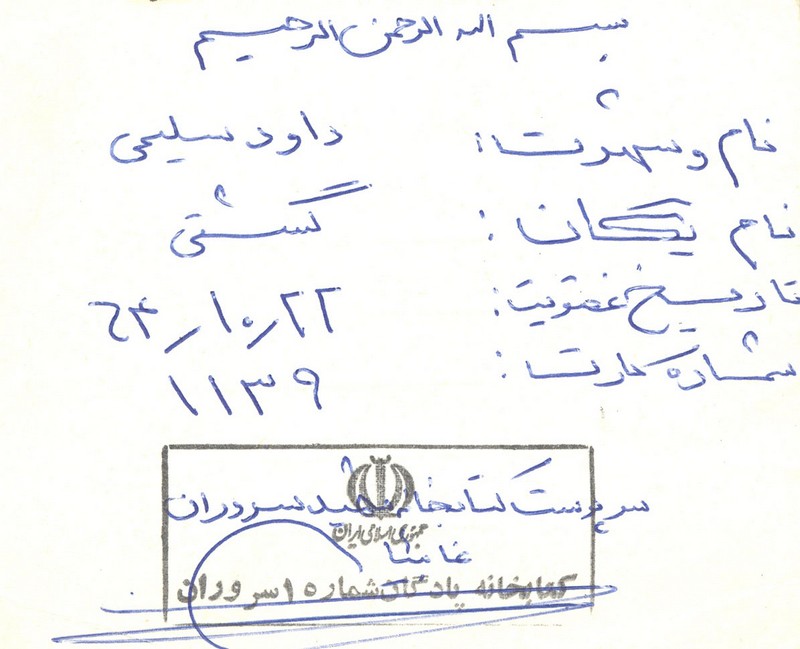 بسم الله الرحمن الرحیم
نام و شهرت: داود سلیمی
نام یکان: گشتی
تاریخ عضویت: ۲۲/۱۰/۶۴
شماره کارت: ۱۱۳۹
سرپرست کتابخانه شهید سروران
جمهوری اسلامی ایران
کتابخانه پادگان شماره ۱ سروران